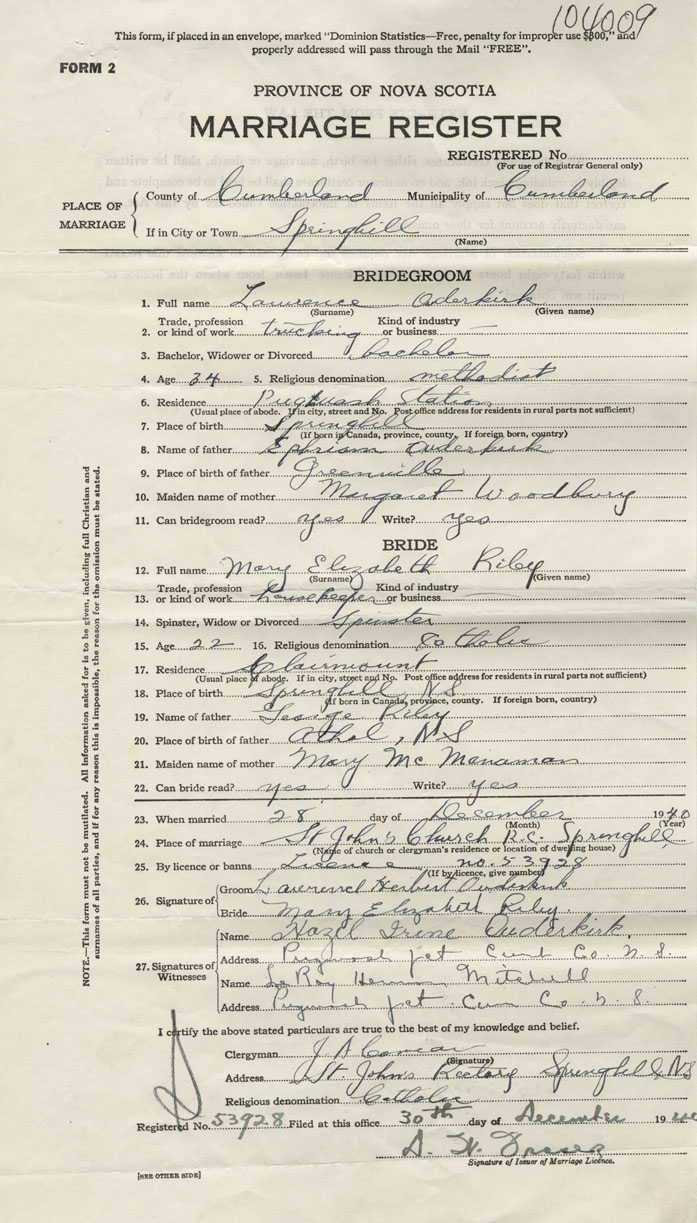 104009
This form, if placed in an envelope, marked “Dominion Statistics—Free, penalty for improper use $300,” and
properly addressed will pass through the Mail “FREE”.
FORM 2
PROVINCE OF NOVA SCOTIA
MARRIAGE REGISTER
REGISTERED No.
(For use of Registrar General only)
PLACE OF MARRIAGE
County of Cumberland Municipality of Cumberland
If in City or Town Springhill
(Name)
BRIDEGROOM
1. Full name Lawrence Oderkirk
(Surname) (Given name)
Trade, profession Kind of industry
2. or kind of work trucking or business —
3. Bachelor, Widower or Divorced bachelor
4. Age 34 5. Religious denomination methodist
6. Residence Pugwash Station
(Usual place of abode. If in city, street and No. Post office address for residents in rural parts not sufficient)
7. Place of birth Springhill
(If born in Canada, province, county. If foreign born, country)
8. Name of father Ephriam Ouderkirk
9. Place of birth of father Greenville
10. Maiden name of mother Margaret Woodbury
11. Can bridegroom read? yes Write? yes
BRIDE
12. Full name Mary Elizabeth Riley
(Surname) (Given name)
Trade, profession Kind of industry
13. or kind of work housekeeper or business —
14. Spinster, Widow or Divorced Spinster
15. Age 22 16. Religious denomination Catholic
17. Residence Clairmount
(Usual place of abode. If in city, street and No. Post office address for residents in rural parts not sufficient)
18. Place of birth Springhill, N.S
(If born in Canada, province, county. If foreign born, country)
19. Name of father George Riley
20. Place of birth of father Athol, N.S
21. Maiden name of mother Mary Mc Manaman
22. Can bride read? yes Write? yes
23. When married 28 day of December 1940
(Month) (Year)
24. Place of marriage St John's Church R.C. Springhill
(Name of church or clergyman's residence or location of dwelling house)
25. By licence or banns Licence no. 53928
(If by licence, give number)
26. Signature of
Groom Lawrence Herbert Ouderkirk
Bride Mary Elizabeth Riley.
27. Signatures of Witnesses
Name Hazel Irene Ouderkirk.
Address Pugwash jct Cumb Co. N.S.
Name LeRoy Herman Mitchell
Address Pugwash jct. Cum Co. N.S.
I certify the above stated particulars are true to the best of my knowledge and belief.
Clergyman J A
(Signature)
Address St. John's Rectory Springhill, N.S
Religious denomination Catholic
Registered No. 53928 Filed at this office 30th day of December 19
A.
Signature of Issuer of Marriage Licence.
[SEE OTHER SIDE]
NOTE.—This form must not be mutilated. All information asked for is to be given, including full Christian and
surnames of all parties, and if for any reason this is impossible, the reason for the omission must be stated.